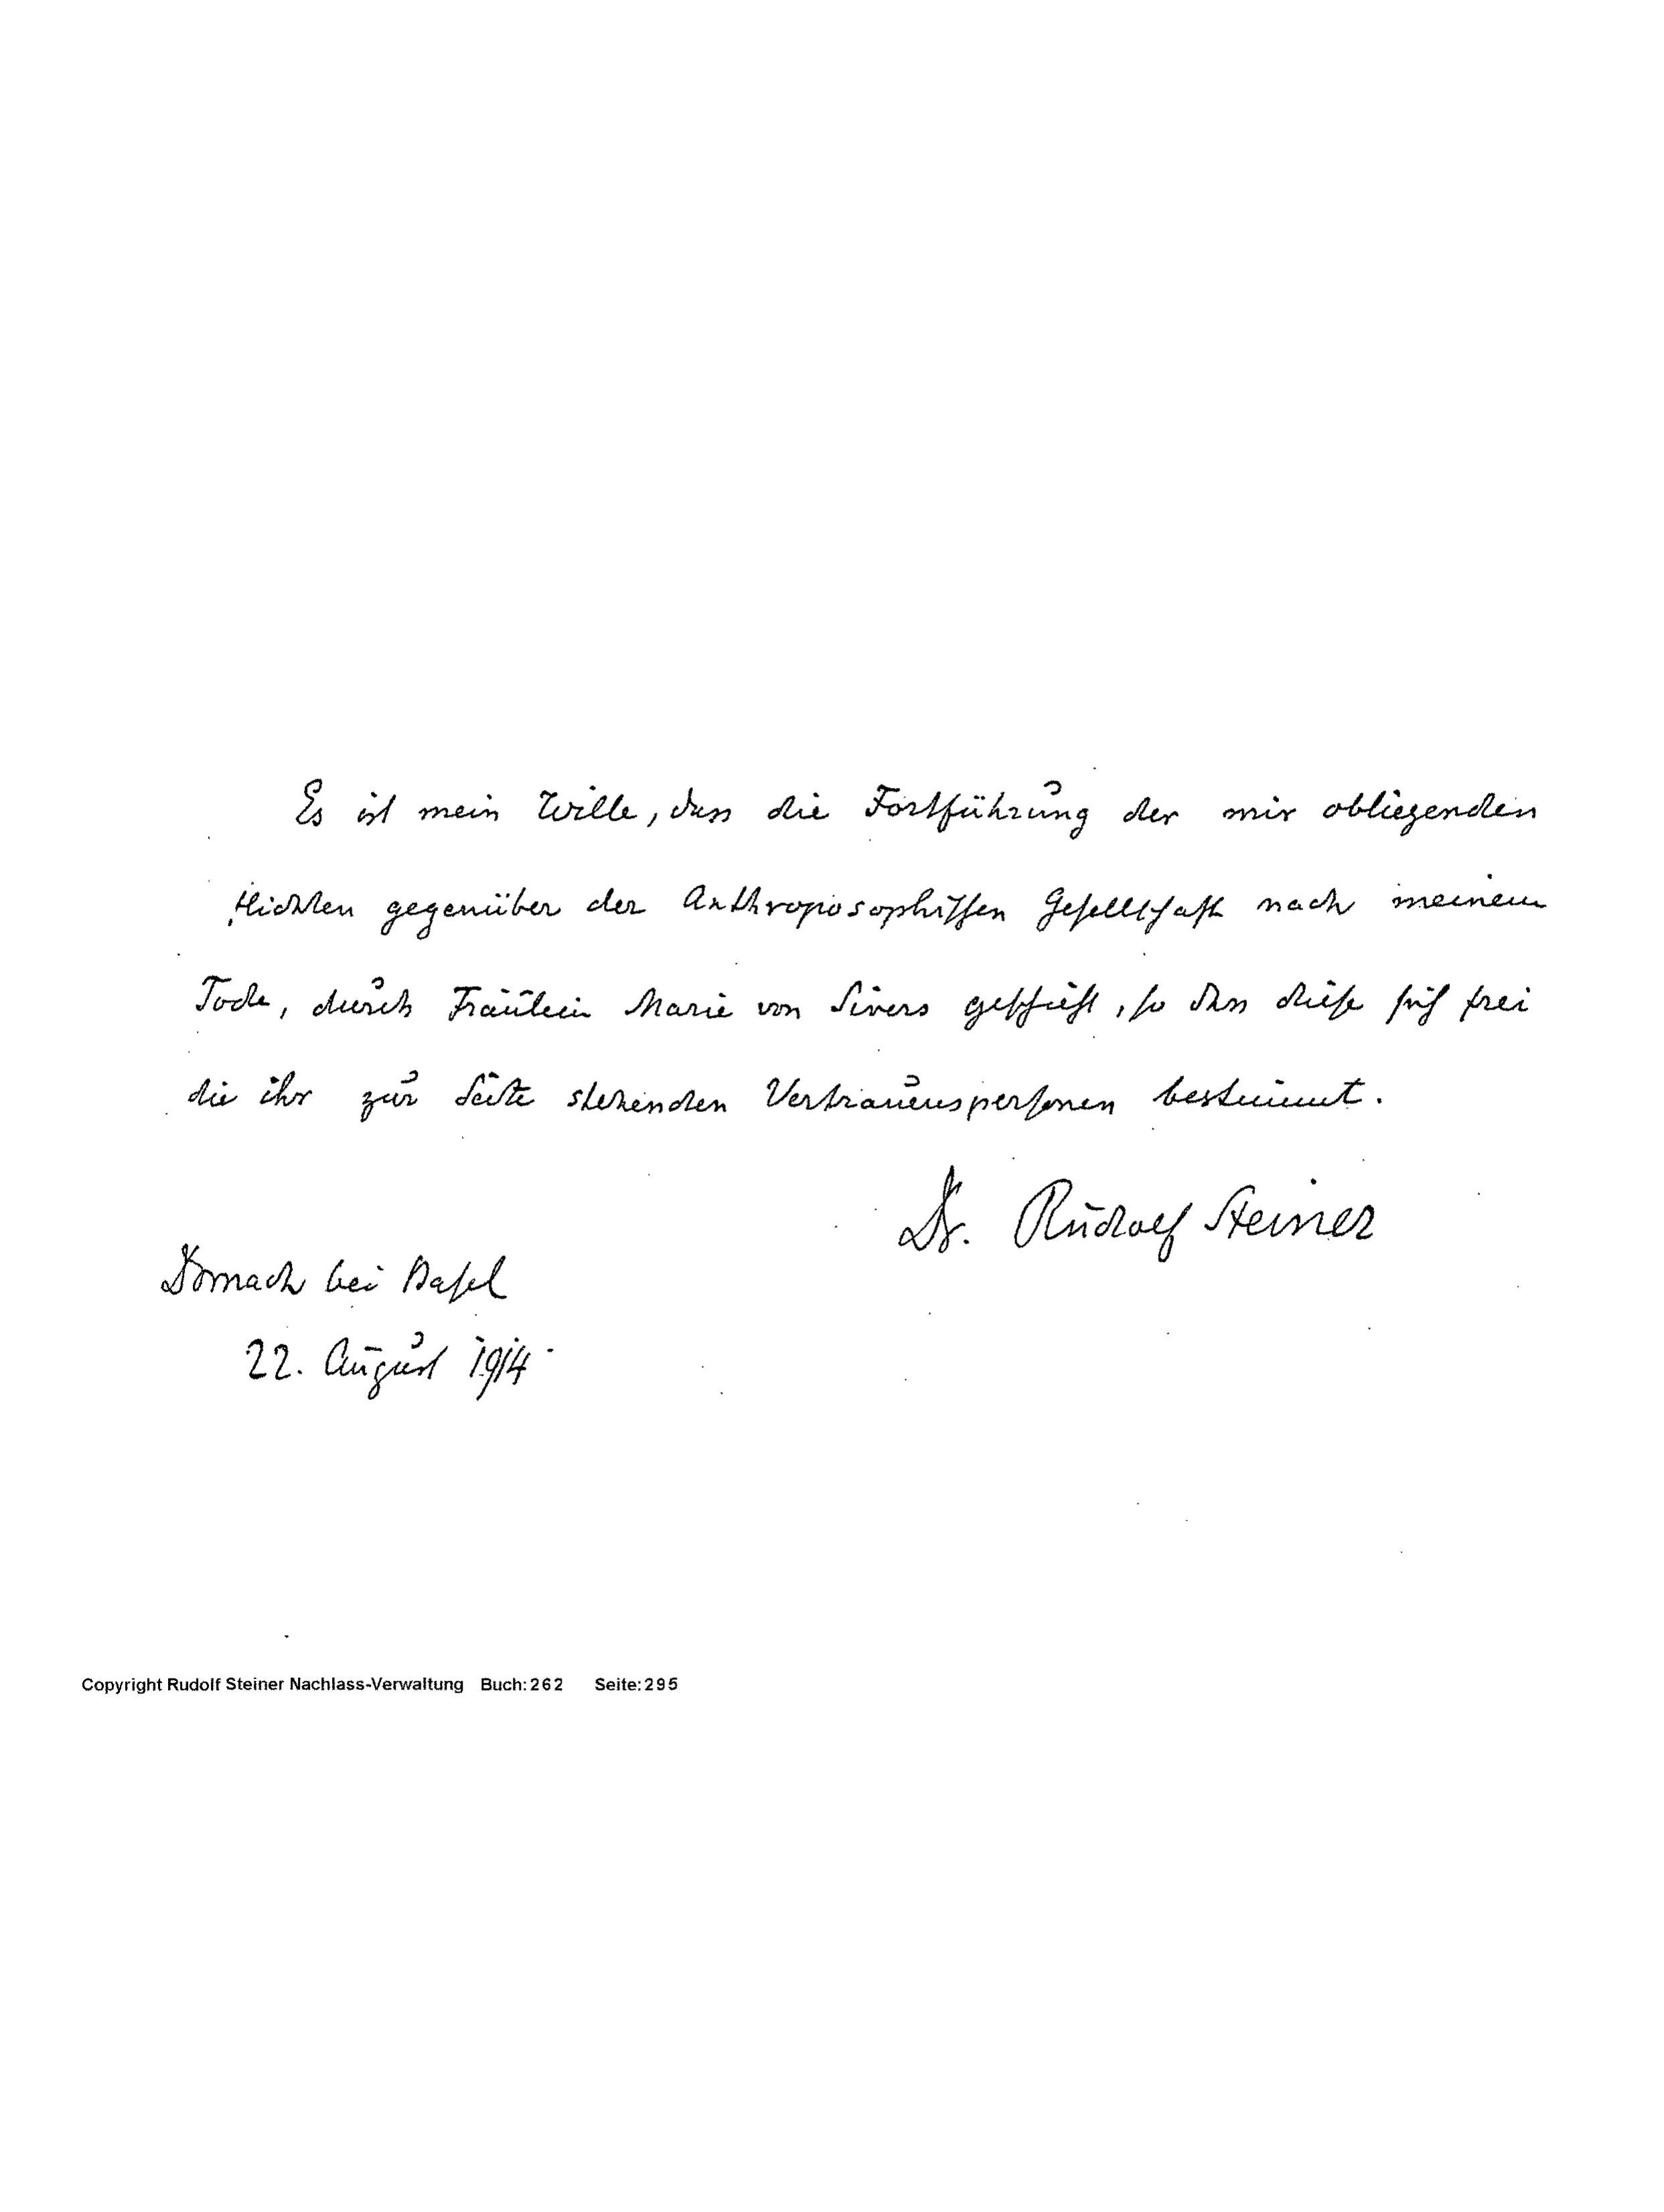 Es ist mein Wille, dass die Fortführung der mir obliegenden
Pflichten gegenüber der Anthroposophischen Gesellschaft nach meinem
Tode, durch Fräulein Marie von Sivers geschieht, so dass diese sich frei
die ihr zur Seite stehenden Vertrauenspersonen bestimmt.
Dr. Rudolf Steiner
Dornach bei Basel
22. August 1914
Copyright Rudolf Steiner Nachlass-Verwaltung Buch:262 Seite:295